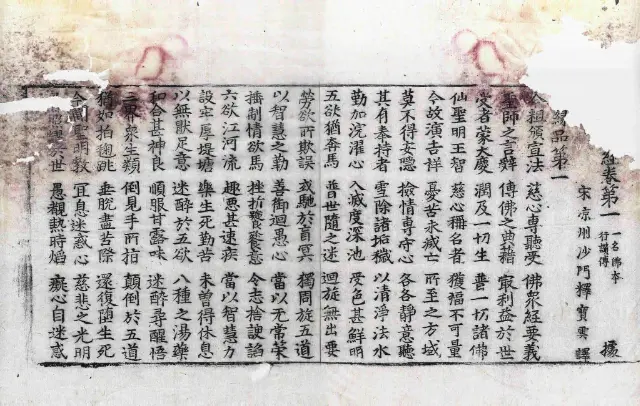 卷第一 一名佛本行讚傳 據
宋涼州沙門釋寶雲譯
品第一
今祖頒宣法 慈心專聽受 佛衆經要義
聖師之言辭 傳佛之典籍 最利益於世
受者蒙大慶 潤及一切生 普一切諸佛
仙聖明王智 慈心稱名者 獲福不可量
今故演吉祥 憂苦永滅亡 所至之方域
莫不得安隱 撿情專守心 各各靜意聽
其有奉持者 霍除諸垢穢 以清淨法水
勤加洗濯心 入滅度深池 受色甚鮮明
五欲猶奔馬 普世隨之迷 迴旋無出要
勞欲所欺誤 或馳於盲冥 獨周旋五道
以智慧之勒 善御迴愚心 當以無常策
捶制情欲馬 挫折饕餮意 令志捨諛諂
六欲江河流 趣惡甚速疾 當以智慧力
設牢厚堤塘 樂生死勤苦 未曾得休息
以無猒足意 迷醉於五欲 八種之湯藥
和合甚神良 順服甘露味 迷醉尋醒悟
三界衆生類 倒見手所指 顛倒於五道
猶如拍毱跳 垂脫盡苦際 還復墮生死
今聞聖明教 宜息迷惑心 慈悲之光明
於世 愚覩熱時焰 癡心自迷惑